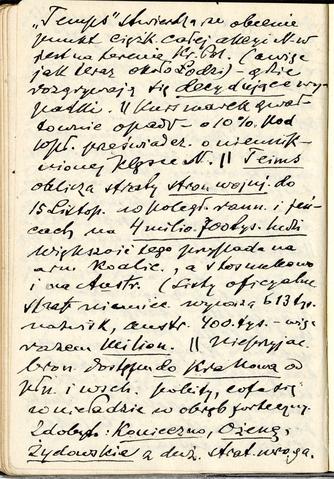 "Temps" stwierdza, że obecnie
punkt ciężk. całej akcyi N-w
jest na terenie Kr. Pol. (a więc
jak teraz około Łodzi) - gdzie
rozgrywają się decydujące wy-
padki. || Kurs marek gwał-
townie opadł o 10%. Pod
wpł. przeświadcz. o nieunik-
nionej klęsce N. || Teims
oblicza straty stron wojuj. do
15 Listop. w poległ. rann. i jeń-
cach na 4 milio. 700 tys. ludzi
większość tego przypada na
arm. Koalic., a stosunkowo
i na Austr. (Listy oficyalne
strat niemiec wynoszą 613 tys.
nazwisk, austr. 400. tys. - więc
razem milion. || Nieprzyjac.
bron. dostępu do Krakowa od
płn. i wsch. pobity, cofa się
w nieładzie w obręb fortecy.
Zdobyto: Konieczno,
Żydowskie a duż. strat. wroga.